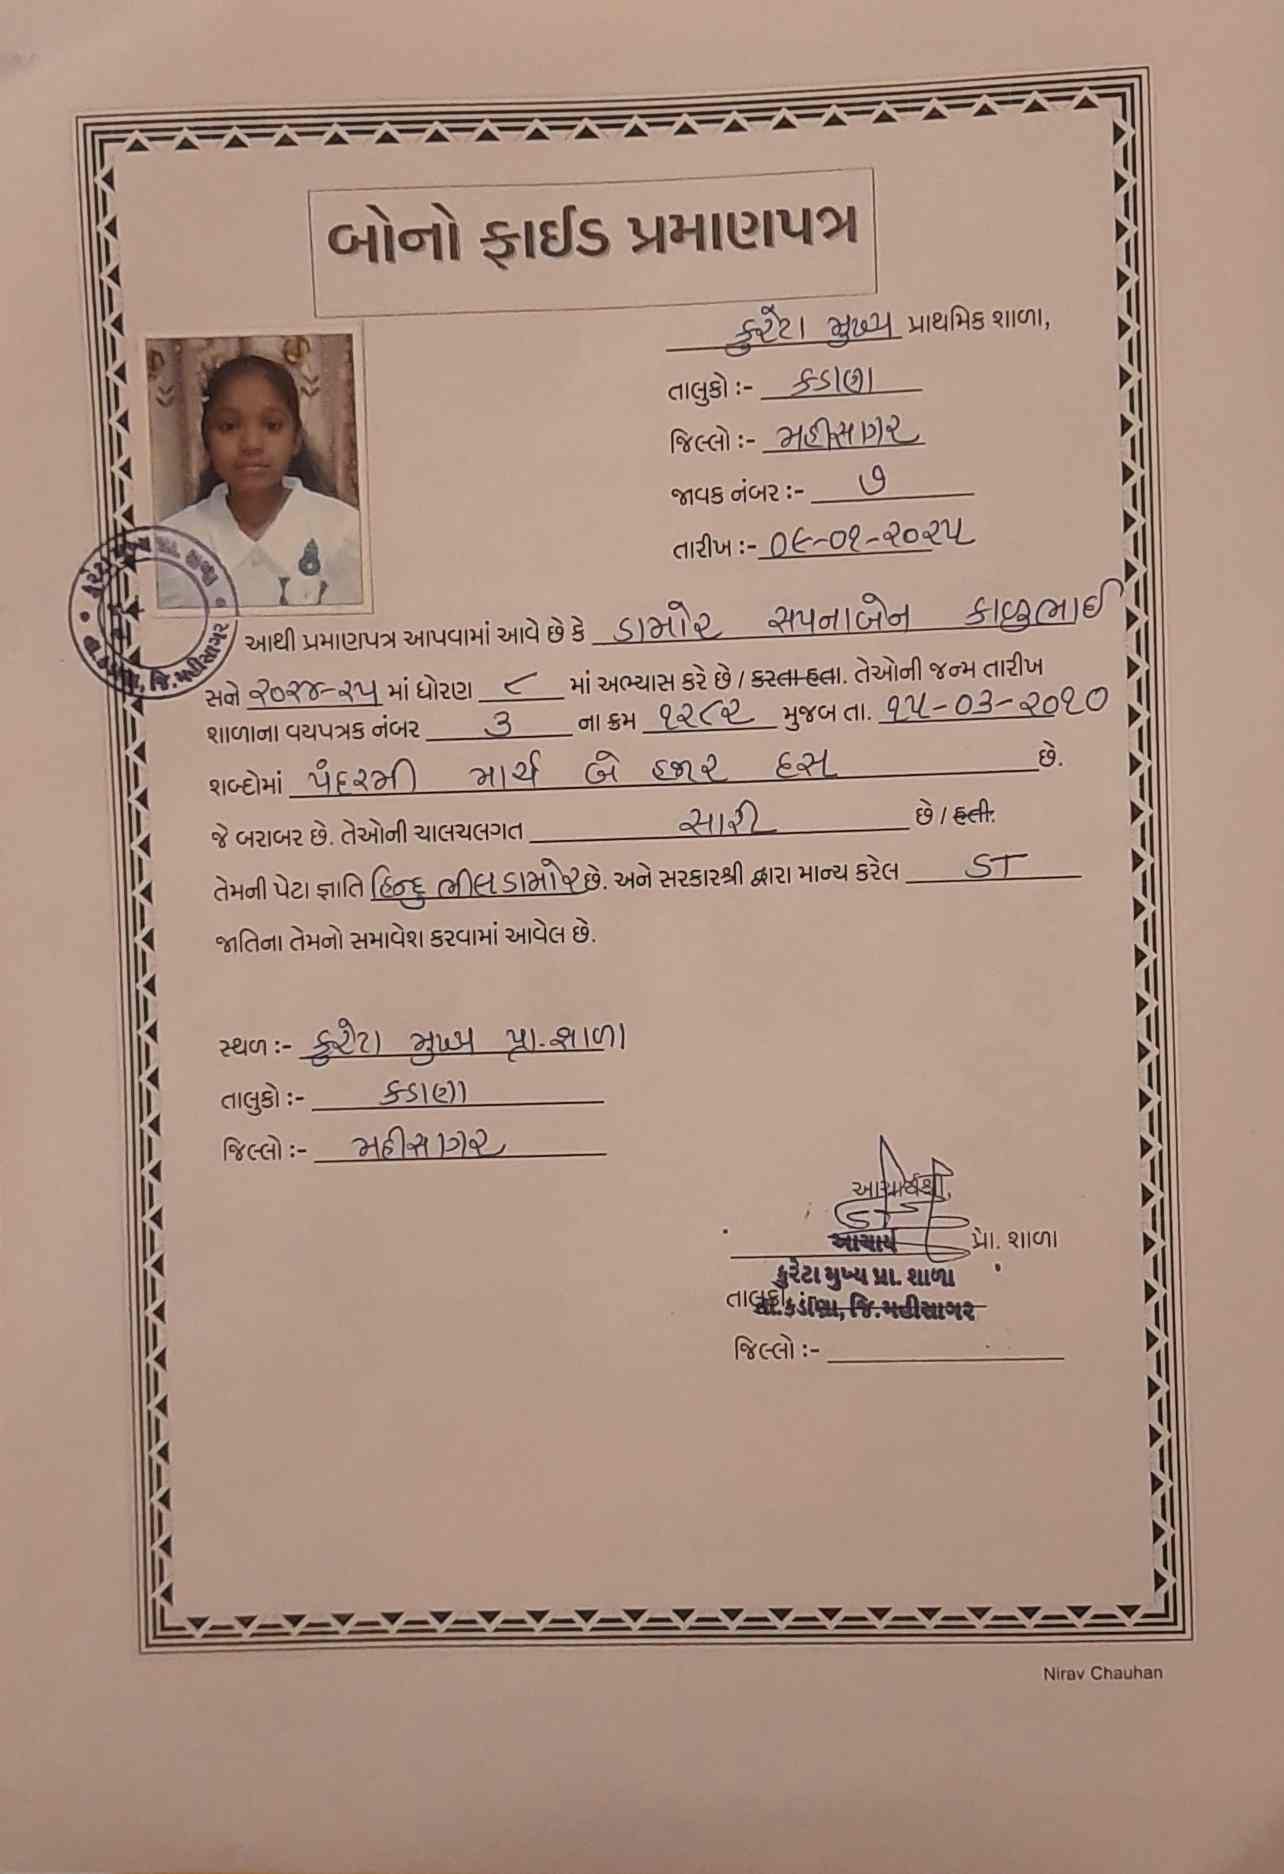 બોનો ફાઈડ પ્રમાણપત્ર
કુરેટા મુખ્ય પ્રાથમિક શાળા,
તાલુકો :- કડાણા
જિલ્લો :- મહીસાગર
જાવક નંબર :- ૭
તારીખ :- ૦૯-૦૧-૨૦૨૫
આથી પ્રમાણપત્ર આપવામાં આવે છે કે ડામોર સપનાબેન કાળુભાઈ
સને ૨૦૨૪-૨૫ માં ધોરણ ૮ માં અભ્યાસ કરે છે / કરતા હતા. તેઓની જન્મ તારીખ
શાળાના વયપત્રક નંબર ૩ ના ક્રમ ૧૨૮૨ મુજબ તા. ૧૫-૦૩-૨૦૧૦
શબ્દોમાં પંદરમી માર્ચ બે હજાર દસ છે.
જે બરાબર છે. તેઓની ચાલચલગત સારી છે / હતી.
તેમની પેટા જ્ઞાતિ હિન્દુ ભીલ ડામોર છે. અને સરકારશ્રી દ્વારા માન્ય કરેલ ST
જાતિના તેમનો સમાવેશ કરવામાં આવેલ છે.
સ્થળ :- કુરેટા મુખ્ય પ્રા. શાળા
તાલુકો :- કડાણા
જિલ્લો :- મહીસાગર
આચાર્યશ્રી,
આચાર્ય પ્રા. શાળા
કુરેટા મુખ્ય પ્રા. શાળા
તાલુકો તા. કડાણા, જિ. મહીસાગર
જિલ્લો :-
Nirav Chauhan